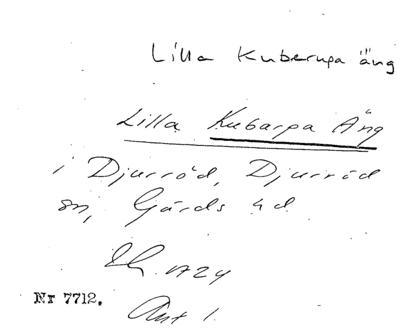 Lilla Kuberupa äng
Lilla Kubarpa Äng
i Djurröd, Djurröd
sn, Gärds hd
1724
Nr 7712.
Akt 1.